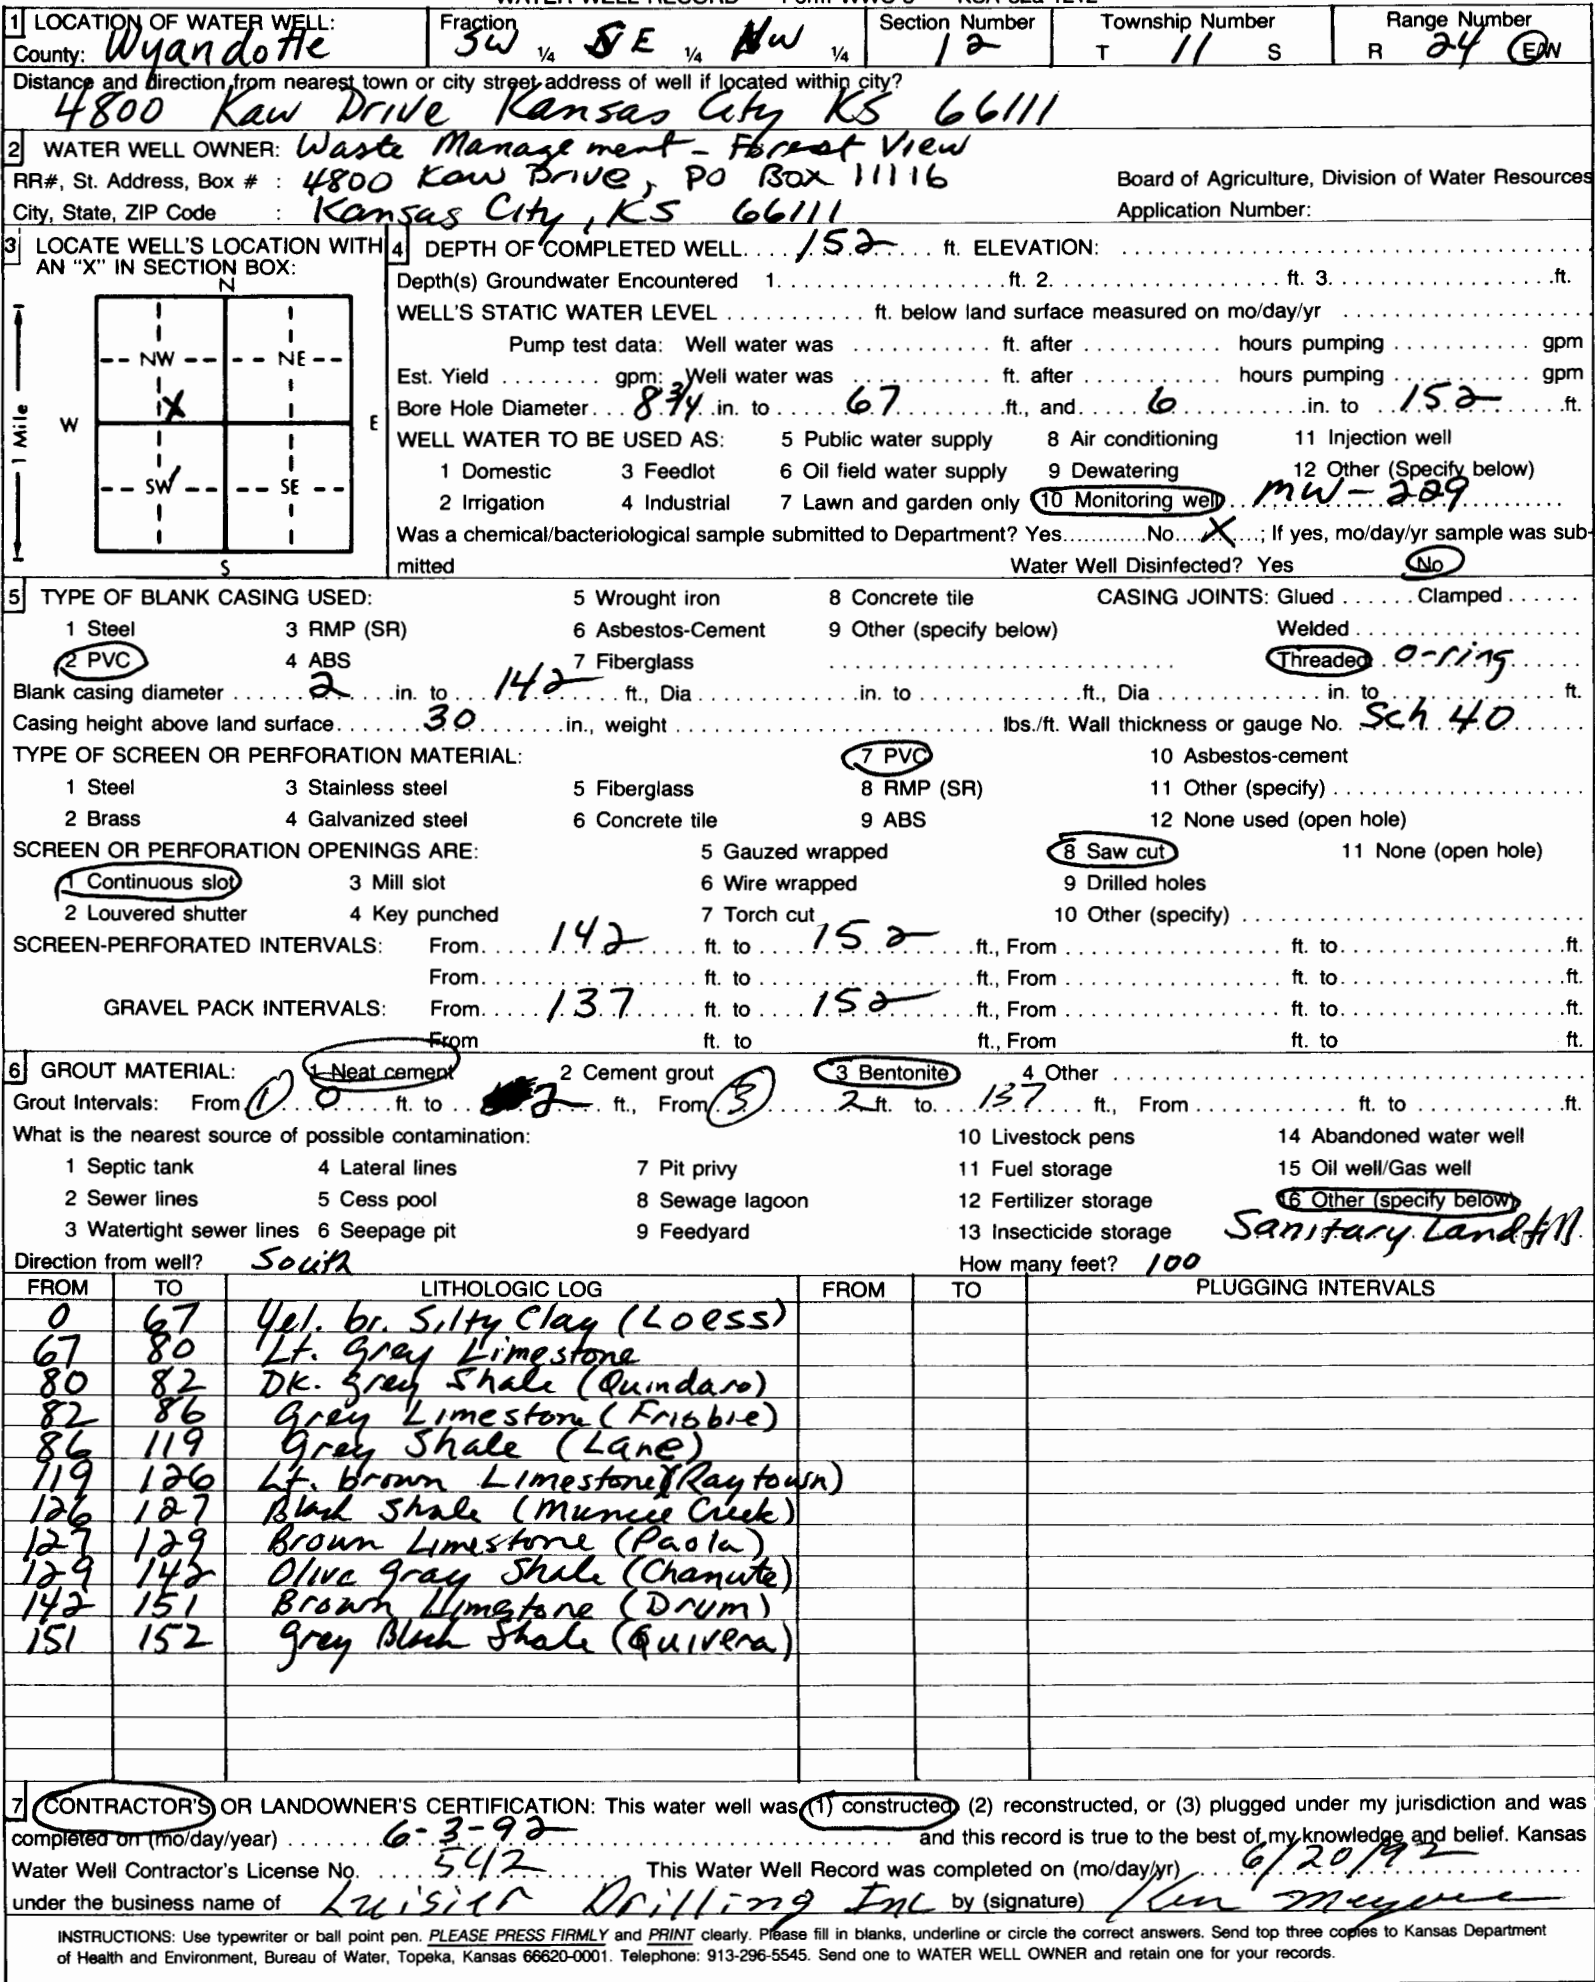 1 LOCATION OF WATER WELL: Fraction Section Number Township Number Range Number
County: Wyandotte SW ¼ SE ¼ NW ¼ 12 T 11 S R 24 E/W
Distance and direction from nearest town or city street address of well if located within city?
4800 Kaw Drive Kansas City KS 66111
2 WATER WELL OWNER: Waste Management - Forest View
RR#, St. Address, Box # : 4800 Kaw Drive, PO Box 11116 Board of Agriculture, Division of Water Resources
City, State, ZIP Code : Kansas City, KS 66111 Application Number:
3 LOCATE WELL'S LOCATION WITH AN "X" IN SECTION BOX:
N
NW NE
X
W E
SW SE
S
1 Mile
4 DEPTH OF COMPLETED WELL.... 152 .... ft. ELEVATION:
Depth(s) Groundwater Encountered 1. ft. 2. ft. 3. ft.
WELL'S STATIC WATER LEVEL ft. below land surface measured on mo/day/yr
Pump test data: Well water was ft. after hours pumping gpm
Est. Yield gpm: Well water was ft. after hours pumping gpm
Bore Hole Diameter 8 3/4 in. to 67 ft., and 6 in. to 152 ft.
WELL WATER TO BE USED AS: 5 Public water supply 8 Air conditioning 11 Injection well
1 Domestic 3 Feedlot 6 Oil field water supply 9 Dewatering 12 Other (Specify below)
2 Irrigation 4 Industrial 7 Lawn and garden only 10 Monitoring well MW-229
Was a chemical/bacteriological sample submitted to Department? Yes No X ; If yes, mo/day/yr sample was sub-
mitted Water Well Disinfected? Yes No
5 TYPE OF BLANK CASING USED: 5 Wrought iron 8 Concrete tile CASING JOINTS: Glued Clamped
1 Steel 3 RMP (SR) 6 Asbestos-Cement 9 Other (specify below) Welded
2 PVC 4 ABS 7 Fiberglass Threaded O-ring
Blank casing diameter 2 in. to 142 ft., Dia in. to ft., Dia in. to ft.
Casing height above land surface 30 in., weight lbs./ft. Wall thickness or gauge No. Sch 40
TYPE OF SCREEN OR PERFORATION MATERIAL: 7 PVC 10 Asbestos-cement
1 Steel 3 Stainless steel 5 Fiberglass 8 RMP (SR) 11 Other (specify)
2 Brass 4 Galvanized steel 6 Concrete tile 9 ABS 12 None used (open hole)
SCREEN OR PERFORATION OPENINGS ARE: 5 Gauzed wrapped 8 Saw cut 11 None (open hole)
1 Continuous slot 3 Mill slot 6 Wire wrapped 9 Drilled holes
2 Louvered shutter 4 Key punched 7 Torch cut 10 Other (specify)
SCREEN-PERFORATED INTERVALS: From 142 ft. to 152 ft., From ft. to ft.
From ft. to ft., From ft. to ft.
GRAVEL PACK INTERVALS: From 137 ft. to 152 ft., From ft. to ft.
From ft. to ft., From ft. to ft.
6 GROUT MATERIAL: 1 Neat cement 2 Cement grout 3 Bentonite 4 Other
Grout Intervals: From 1 0 ft. to 2 ft., From 3 2 ft. to 137 ft., From ft. to ft.
What is the nearest source of possible contamination: 10 Livestock pens 14 Abandoned water well
1 Septic tank 4 Lateral lines 7 Pit privy 11 Fuel storage 15 Oil well/Gas well
2 Sewer lines 5 Cess pool 8 Sewage lagoon 12 Fertilizer storage 16 Other (specify below)
3 Watertight sewer lines 6 Seepage pit 9 Feedyard 13 Insecticide storage Sanitary Landfill
Direction from well? South How many feet? 100
FROM TO LITHOLOGIC LOG FROM TO PLUGGING INTERVALS
0 67 Yel. br. Silty Clay (Loess)
67 80 Lt. Grey Limestone
80 82 Dk. Grey Shale (Quindaro)
82 86 Grey Limestone (Frisbie)
86 119 Grey Shale (Lane)
119 126 Lt. brown Limestone (Raytown)
126 127 Black Shale (Muncie Creek)
127 129 Brown Limestone (Paola)
129 142 Olive Gray Shale (Chanute)
142 151 Brown Limestone (Drum)
151 152 Grey Black Shale (Quivera)
7 CONTRACTOR'S OR LANDOWNER'S CERTIFICATION: This water well was (1) constructed, (2) reconstructed, or (3) plugged under my jurisdiction and was
completed on (mo/day/year) 6-3-92 and this record is true to the best of my knowledge and belief. Kansas
Water Well Contractor's License No. 542 This Water Well Record was completed on (mo/day/yr) 6/20/92
under the business name of Luisier Drilling Inc by (signature) Ken
INSTRUCTIONS: Use typewriter or ball point pen. PLEASE PRESS FIRMLY and PRINT clearly. Please fill in blanks, underline or circle the correct answers. Send top three copies to Kansas Department
of Health and Environment, Bureau of Water, Topeka, Kansas 66620-0001. Telephone: 913-296-5545. Send one to WATER WELL OWNER and retain one for your records.